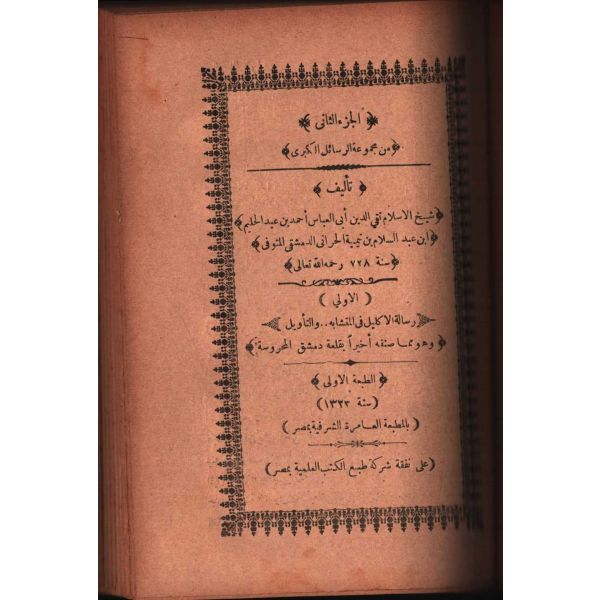 ﴿ الجزء الثانى ﴾
﴿ من مجموعة الرسائل الكبرى ﴾
﴿ تأليف ﴾
﴿ شيخ الاسلام تقي الدين أبى العباس أحمد بن عبد الحليم ﴾
﴿ ابن عبد السلام بن تيمية الحرانى الدمشقى المتوفى ﴾
﴿ سنة ٧٢٨ رحمه الله تعالى ﴾
( الاولي )
رسالة الاكليل فى المتشابه .. والتأويل
﴿ وهو مما صنفه أخيراً بقلعة دمشق المحروسة ﴾
﴿ الطبعة الاولى ﴾
( سنة ١٣٢٣ )
( بالمطبعة العامرة الشرفية بمصر )
( على نفقة شركة طبع الكتب العلمية بمصر )